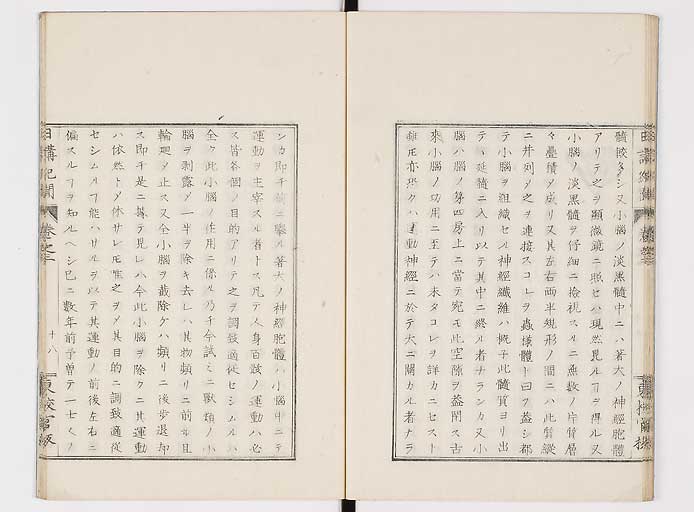 髓較多シ又小腦ノ淡黒髓中ニハ著大ノ神經胞體
アリテ之ヲ顯微鏡ニ照セハ現然見ルヿヲ得ルヌ
小腦ノ淡黒髓ヲ仔細ニ檢視スルニ無數ノ片質層
々疊積ノ成リ又其左右両半規形ノ間ニハ此質縱
ニ并列メ之ヲ連接スコレヲ蟲様體ト曰フ葢シ都
テ小腦ヲ組織セル神經纖維ハ概子此髓質ヨリ出
テハ延髓ニ入リ以テ其中ニ終ル者ナランカ又小
腦ハ腦ノ第四房上ニ當テ宛モ此空隙ヲ葢閉ス古
來小腦ノ功用ニ至テハ未タコレヲ詳カニセスト
雖𪜈亦恐クハ運動神經ニ於テ大ニ關カル者ナラ
シカ即千前ニ擧ル著大ノ神經胞體ハ小腦中ニテ
運動ヲ主宰スル者トス凡テ人身百骸ノ運動ハ必
ス皆各個ノ目的アリテ之ヲ調致適從セシムルハ
全ク此小腦ノ作用ニ係ル乃千今試ミニ獸類ノ小
腦ヲ剥露メ一半ヲ除キ去レハ其物頻リニ前却且
輪廻メ止ス又全小腦ヲ截除ケハ頻リニ後歩退却
ス即千是ニ據テ見レハ今此小腦ヲ除クニ其運動
ハ依然トメ休サレ𪜈唯之ヲメ其目的ニ調致適從
セシムルヿ能ハサルヲ以テ其運動ノ前後左右ニ
偏スルヿヲ知ルヘシ巳ニ數年前予曽テ一士人ノ
日講紀聞
卷之二
十八
東校官版